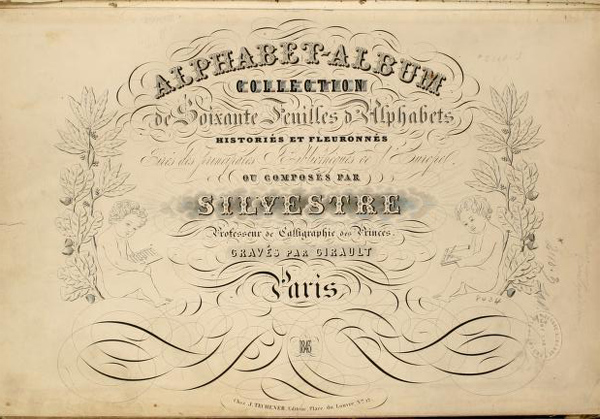 ALPHABET-ALBUM
COLLECTION
de Soixante Feuilles d'Alphabets
HISTORIÉS ET FLEURONNÉS
Tirés des principales Bibliothèques de l'Europe
OU COMPOSÉS PAR
SILVESTRE
Professeur de Calligraphie des Princes.
GRAVÉS PAR GIRAULT
Paris
1843
Chez J. TECHENER, Editeur, Place du Louvre, N.º 12.